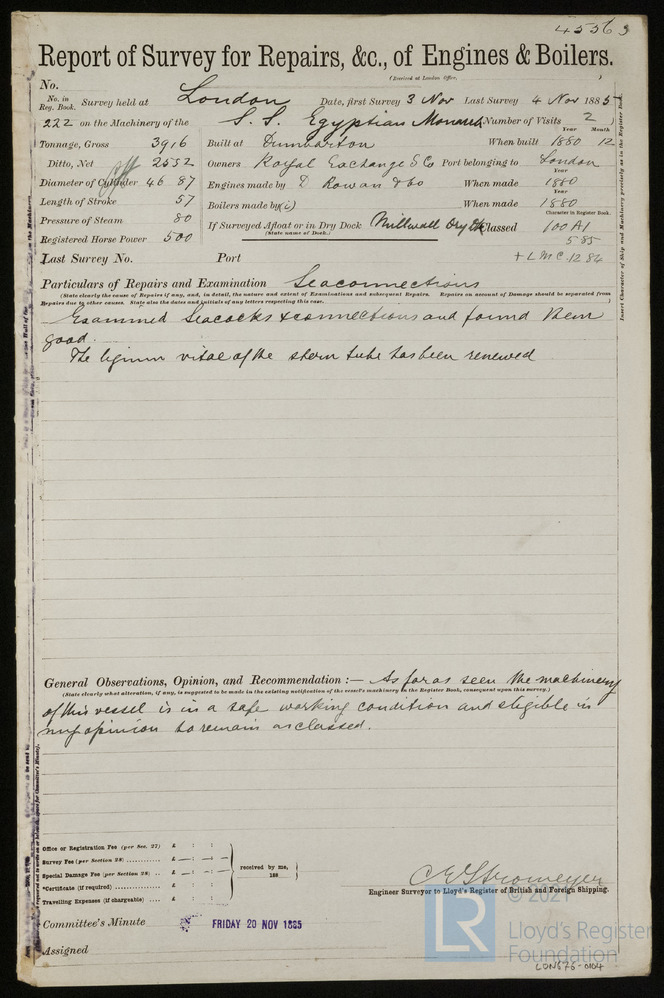 45563
Report of Survey for Repairs, &c., of Engines & Boilers.
(Received at London Office, )
No.
No. in Reg. Book. Survey held at London Date, first Survey 3 Nov Last Survey 4 Nov 1885
222 on the Machinery of the S. S. Egyptian Monarch Number of Visits 2
Tonnage, Gross 3916 Built at Dumbarton When built Year 1880 Month 12
Ditto, Net 2552 Owners Royal Exchange S Co Port belonging to London
Diameter of Cylinder 46 87 Engines made by D Rowan & Co When made Year 1880
Length of Stroke 57 Boilers made by (i) When made Year 1880
Pressure of Steam 80 If Surveyed Afloat or in Dry Dock Millwall Dry Dk Classed Character in Register Book. 100 A1
(State name of Dock.)
Registered Horse Power 500 5.85
Last Survey No. Port + L M C. 12.84
Particulars of Repairs and Examination Seaconnections
(State clearly the cause of Repairs if any, and, in detail, the nature and extent of Examinations and subsequent Repairs. Repairs on account of Damage should be separated from
Repairs due to other causes. State also the dates and initials of any letters respecting this case. )
Examined Seacocks & connections and found them
good.
The lignum vitae of the stern tube has been renewed
General Observations, Opinion, and Recommendation :— As far as seen the machinery
(State clearly what alteration, if any, is suggested to be made in the existing notification of the vessel's machinery in the Register Book, consequent upon this survey.)
of this vessel is in a safe working condition and eligible in
my opinion to remain as classed.
Office or Registration Fee (per Sec. 27) £ : :
Survey Fee (per Section 28) £
Special Damage Fee (per Section 28) £
received by me,
188
*Certificate (if required) £ : :
Travelling Expenses (if chargeable) £ : :
C E Stromeyer
Engineer Surveyor to Lloyd's Register of British and Foreign Shipping.
Committee's Minute FRIDAY 20 NOV 1885
Assigned
Insert Character of Ship and Machinery precisely as in the Register Book.
© 2021
LR
Lloyd's Register
Foundation
LDN676-0104